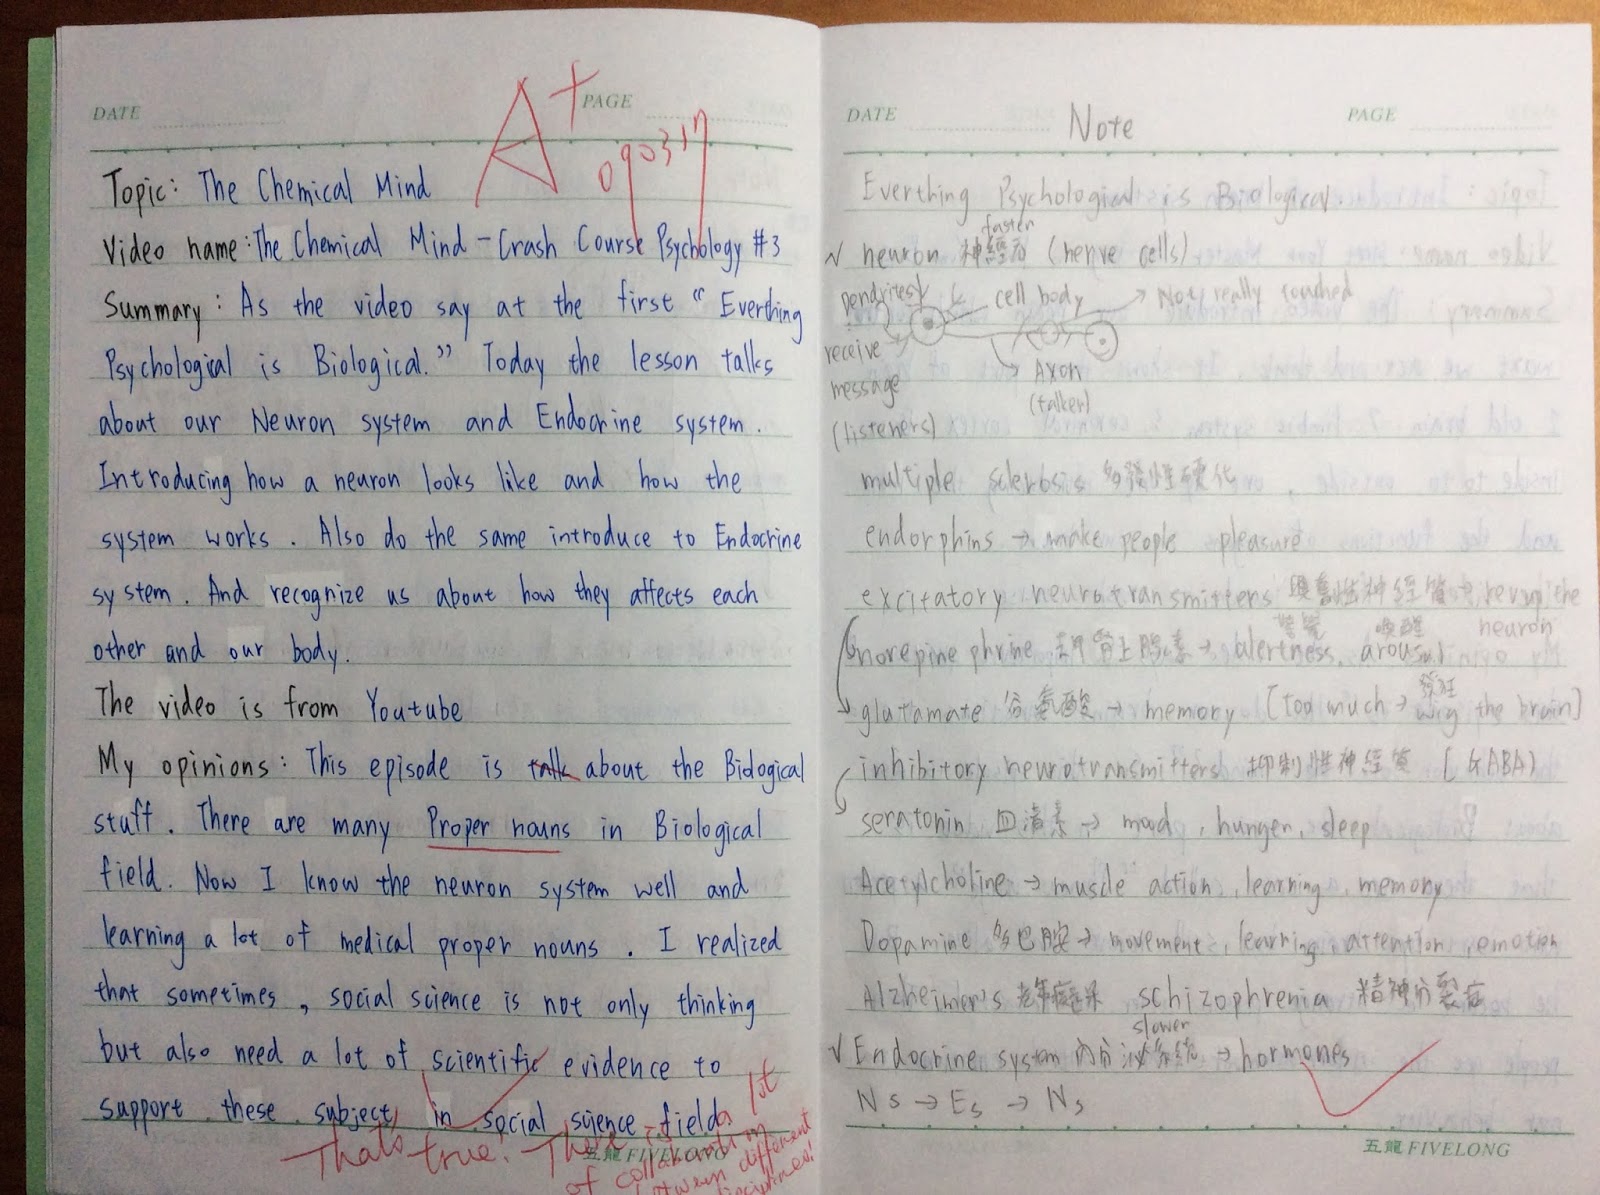 DATE
PAGE
A+
090317
Topic: The Chemical Mind
Video name: The Chemical Mind - Crash Course Psychology #3
Summary: As the video say at the first "Everthing
Psychological is Biological." Today the lesson talks
about our Neuron system and Endocrine system.
Introducing how a neuron looks like and how the
system works. Also do the same introduce to Endocrine
system. And recognize us about how they affects each
other and our body.
The video is from Youtube
My opinions: This episode is talk about the Biological
stuff. There are many Proper nouns in Biological
field. Now I know the neuron system well and
learning a lot of medical proper nouns. I realized
that sometimes, social science is not only thinking
but also need a lot of scientific evidence to
support these subject in social science field.
That's true! There is a lot
of collaboration in
between different
disciplines!
五龍 FIVELONG
DATE
Note
PAGE
Everthing Psychological is Biological.
faster
✓ neuron 神經元 (nerve cells)
dendrites
cell body → Not really touched
receive
message
(listeners)
→ Axon
(talker)
multiple sclerosis 多發性硬化
endorphins → make people pleasure
excitatory neurotransmitters 興奮性神經質 → rev up the
neuron
警覺
喚醒
norepinephrine 去甲腎上腺素 → alertness, arousal
發狂
glutamate 谷氨酸 → memory [Too much → the brain]
inhibitory neurotransmitters 抑制性神經質 (GABA)
seratonin 血清素 → mood, hunger, sleep
Acetylcholine → muscle action, learning, memory
Dopamine 多巴胺 → movement, learning, attention, emotion
Alzheimer's schizophrenia 精神分裂症
slower
✓ Endocrine system 內分泌系統 → hormones
Ns → Es → Ns
五龍 FIVELONG